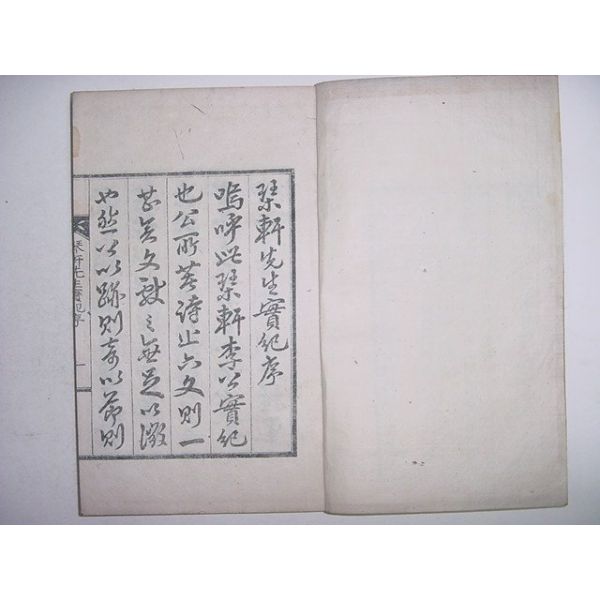 琹軒先生實紀序
嗚呼此琹軒李公實紀
也公所著詩止六文則一
甚矣文獻之無足以徵
也然公以跡則奇以節則
琹軒先生實紀序 一